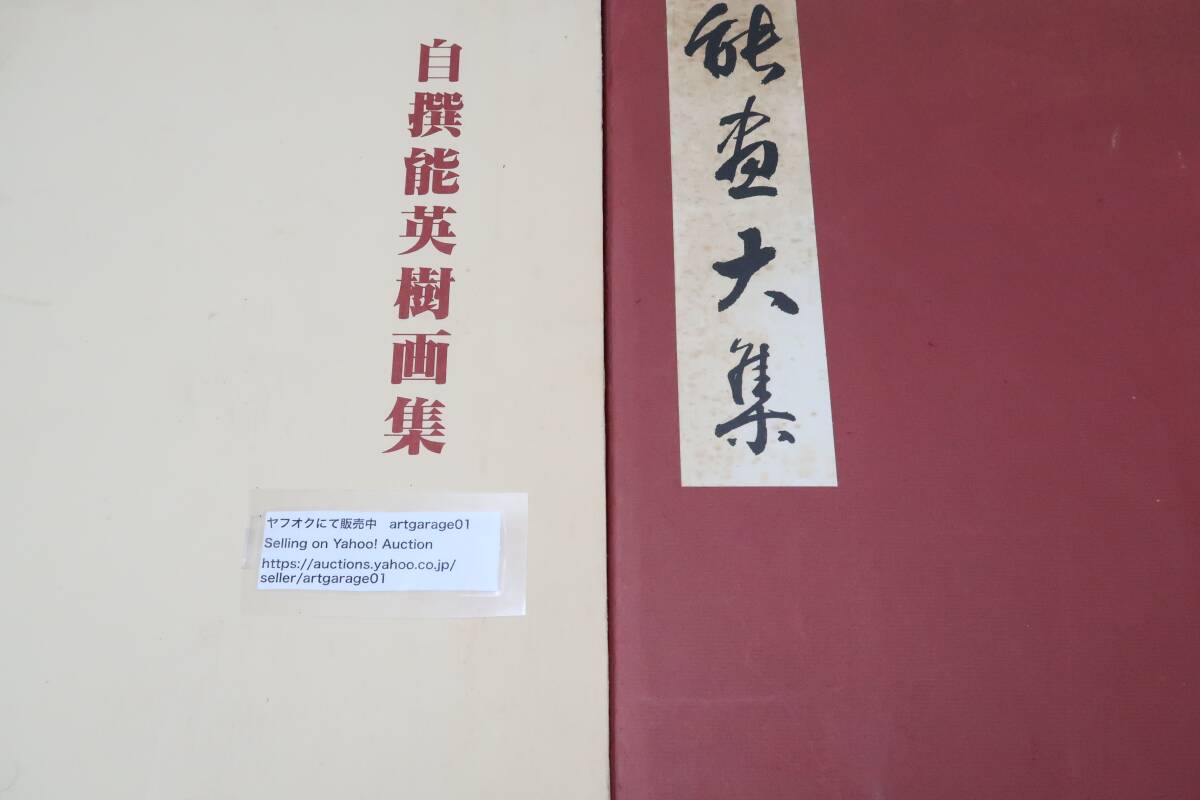 自撰能英樹画集
能画大集
ヤフオクにて販売中 artgarage01
Selling on Yahoo! Auction
https://auctions.yahoo.co.jp/
seller/artgarage01